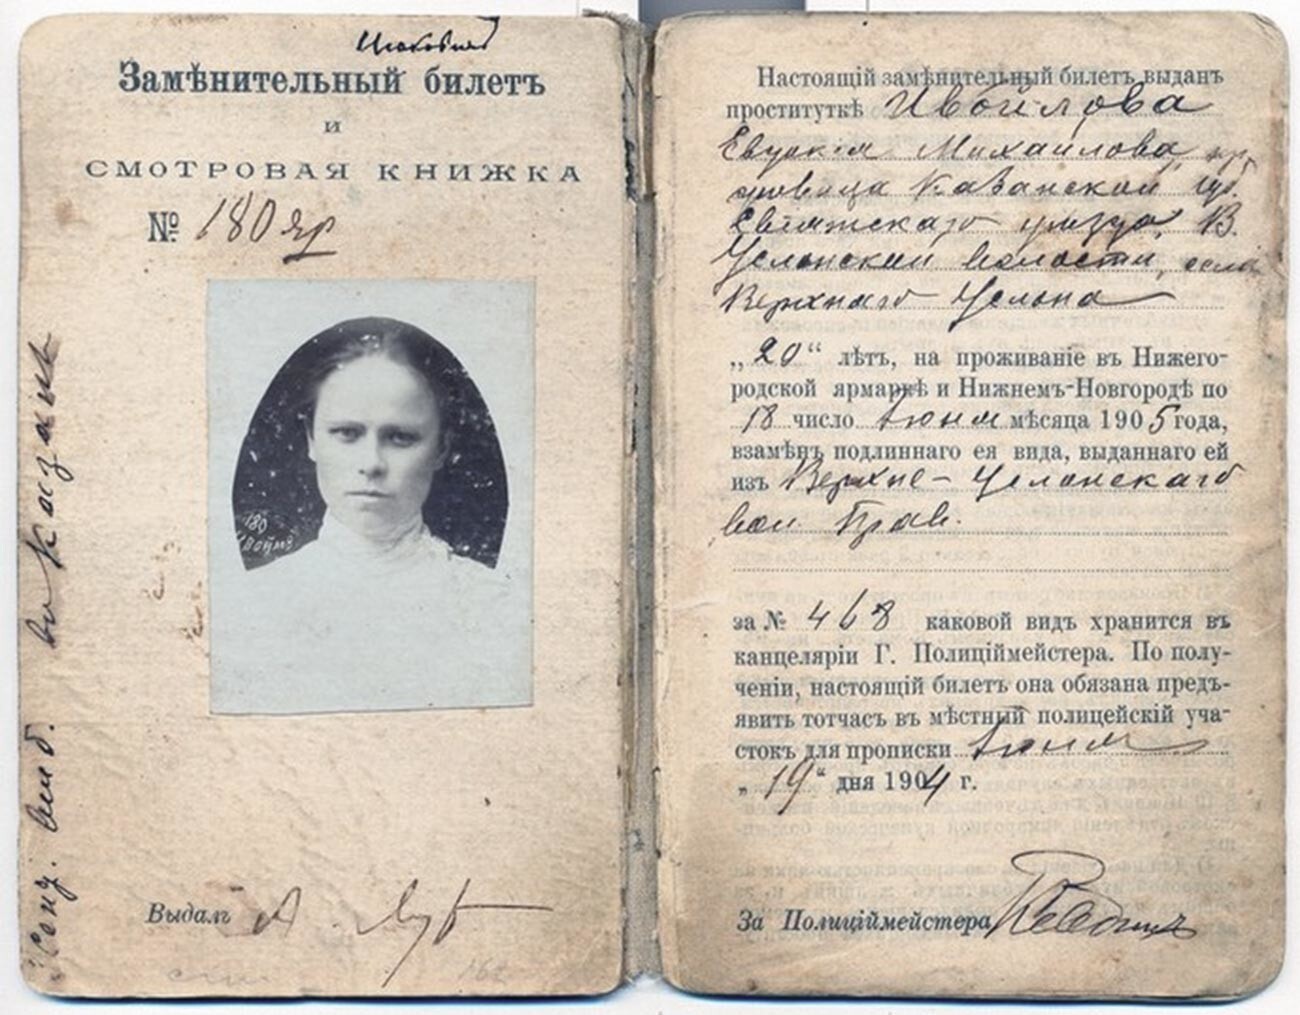 Замѣнительный билетъ
и
СМОТРОВАЯ КНИЖКА
№ 180 яр
180
Выдалъ
въ Казань
Настоящій замѣнительный билетъ выданъ
проституткѣ Ивойлова
Евдокія Михайлова, кр
Казанской губ.
Свіяжскаго уѣзда, В.
Услонской волости, села
Верхняго Услона
„20“ лѣтъ, на проживаніе въ Нижего-
родской ярмаркѣ и Нижнемъ-Новгородѣ по
18 число Іюня мѣсяца 1905 года,
взамѣнъ подлиннаго ея вида, выданнаго ей
изъ Верхне-Услонскаго
вол. Прав.
за № 468 каковой видъ хранится въ
канцеляріи Г. Полиціймейстера. По полу-
ченіи, настоящій билетъ она обязана предъ-
явить тотчасъ въ мѣстный полицейскій уча-
стокъ для прописки Іюня
„19“ дня 1904 г.
За Полиціймейстера